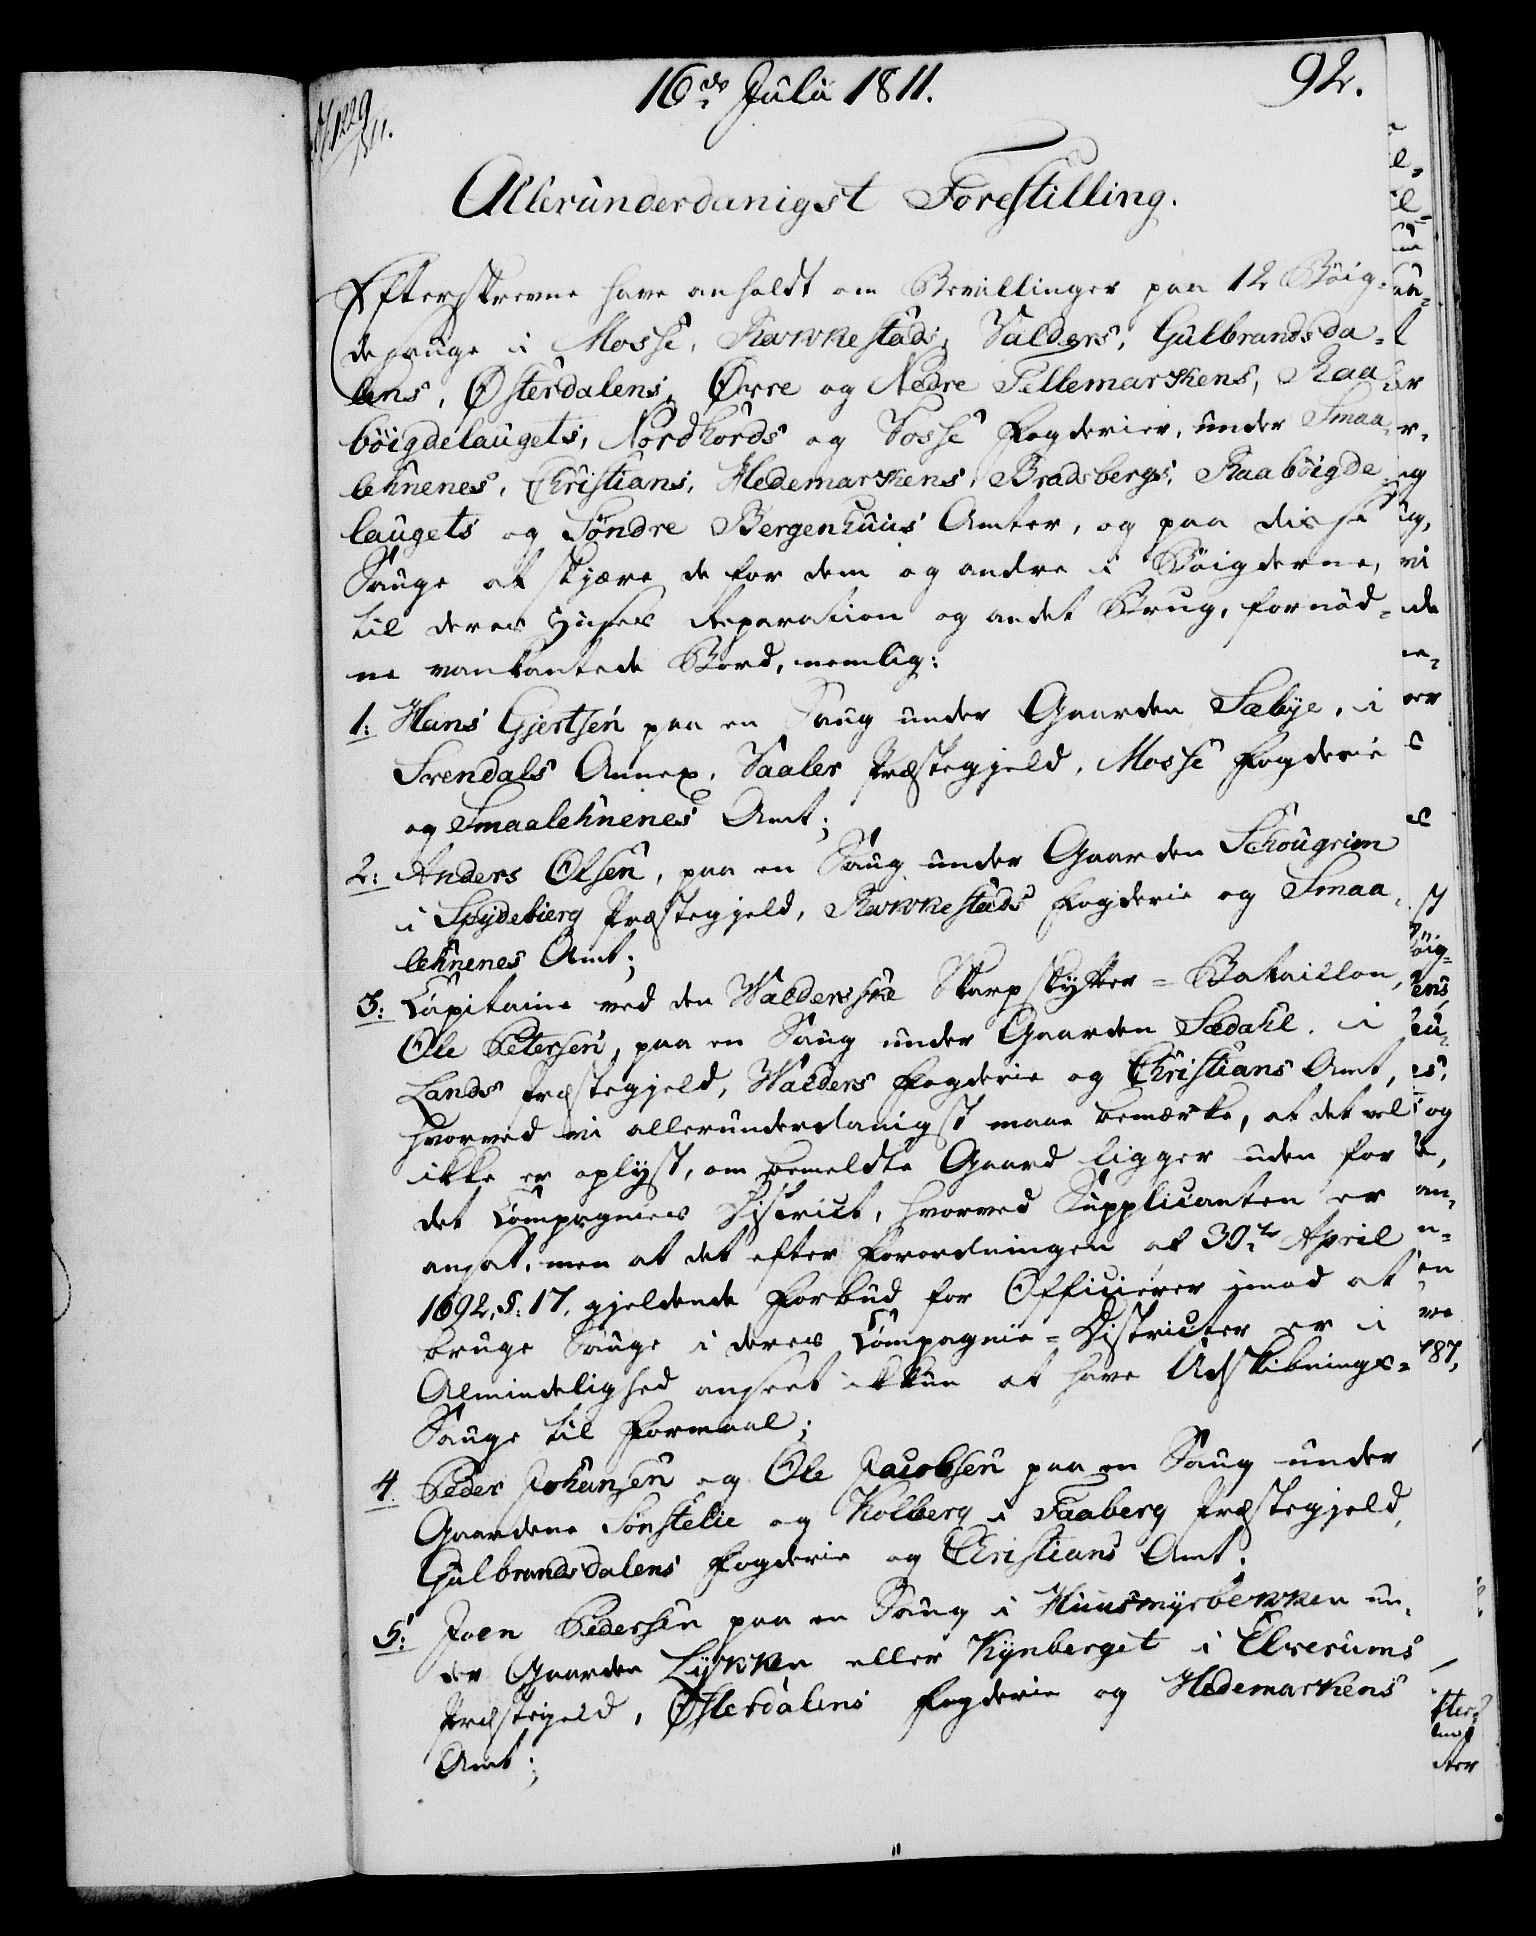 16de Julii 1811.
92.
1229
1811.
Allerunderdanigst Forestilling.
Efterskrevne have anholdt om Bevillinger paa 12 Böig-
desauge i Mosse, Rakkestads, Valders, Gulbrandsda-
lens, Østerdalens, Øvre og Nedre Tellemarkens, Raa
böigdelaugets, Nordhords og Vosse Fogderier, under Smaa-
lehnenes, Christians, Hedemarkens, Bradsbergs, Raaböigde
laugets og Söndre Bergenhuus Amter, og paa disse
Sauge at skjære de for dem og andre i Böigderne,
til deres Huses Reparation og andet Brug, fornöd-
ne vankantede Bord, nemlig:
1: Hans Gjertsen paa en Saug under Gaarden Sæbye, i
Svendals Annex, Vaaler Præstegjeld, Mosse Fogderie
og Smaalehnenes Amt;
2: Anders Olsen, paa en Saug under Gaarden Schougrim
i Spydebierg Præstegjeld, Rakkestads Fogderie og Smaa-
lehnenes Amt;
3: Capitaine ved den Walderske Skarpskytter-Bataillon,
Ole Petersen, paa en Saug under Gaarden Sædahl i
Lands Præstegjeld, Walders Fogderie og Christians Amt,
hvorved vi allerunderdanigst maae bemærke, at det vel
ikke er oplyst, om bemeldte Gaard ligger uden for
det Compagnies District, hvorved Supplicanten er
ansat, men at det efter Forordningen af 30te April
1692, §: 17. gjeldende Forbud for Officierer imod at
bruge Sauge i deres Compagnie-Districter er i
Almindelighed anseet ikkun at have Udskibnings-
Sauge til Formaal;
4. Peder Johansen og Ole Jacobsen paa en Saug under
Gaardene Sönstelie og Kolberg i Faaberg Præstegjeld,
Gulbrandsdalens Fogderie og Christians Amt;
5: Joen Pedersen paa en Saug i Huusmyrbekken un-
der Gaarden Lykken eller Kynberget i Elverums
Præstegjeld, Østerdalens Fogderie og Hedemarkens
Amt;